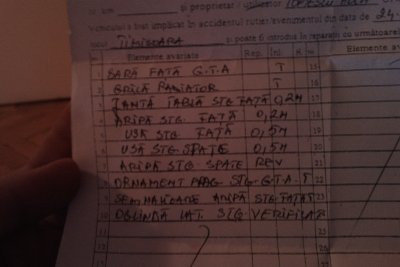 și proprietar / utilizator
Vehiculul a fost implicat în accidentul rutier/evenimentul din data de 24.
TIMIȘOARA și poate fi introdus în reparații cu următoarele
Elemente avariate Rep. Înl. Elemente avariate
BARĂ FAȚĂ G.T.A Î 15
GRILĂ RADIATOR Î 16
JANTĂ TABLĂ STG FAȚĂ 0,2H 17
ARIPĂ STG. FAȚĂ 0,2H 18
UȘĂ STG FAȚĂ 0,5H 19
UȘĂ STG. SPATE 0,5H 20
ARIPĂ STG SPATE REV 21
ORNAMENT PRAG STG. G.T.A. Î 22
SEMNALIZARE ARIPĂ STG FAȚĂ Î
10 OGLINDĂ LAT. STG VERIFICA
11
12 26
13 27
28